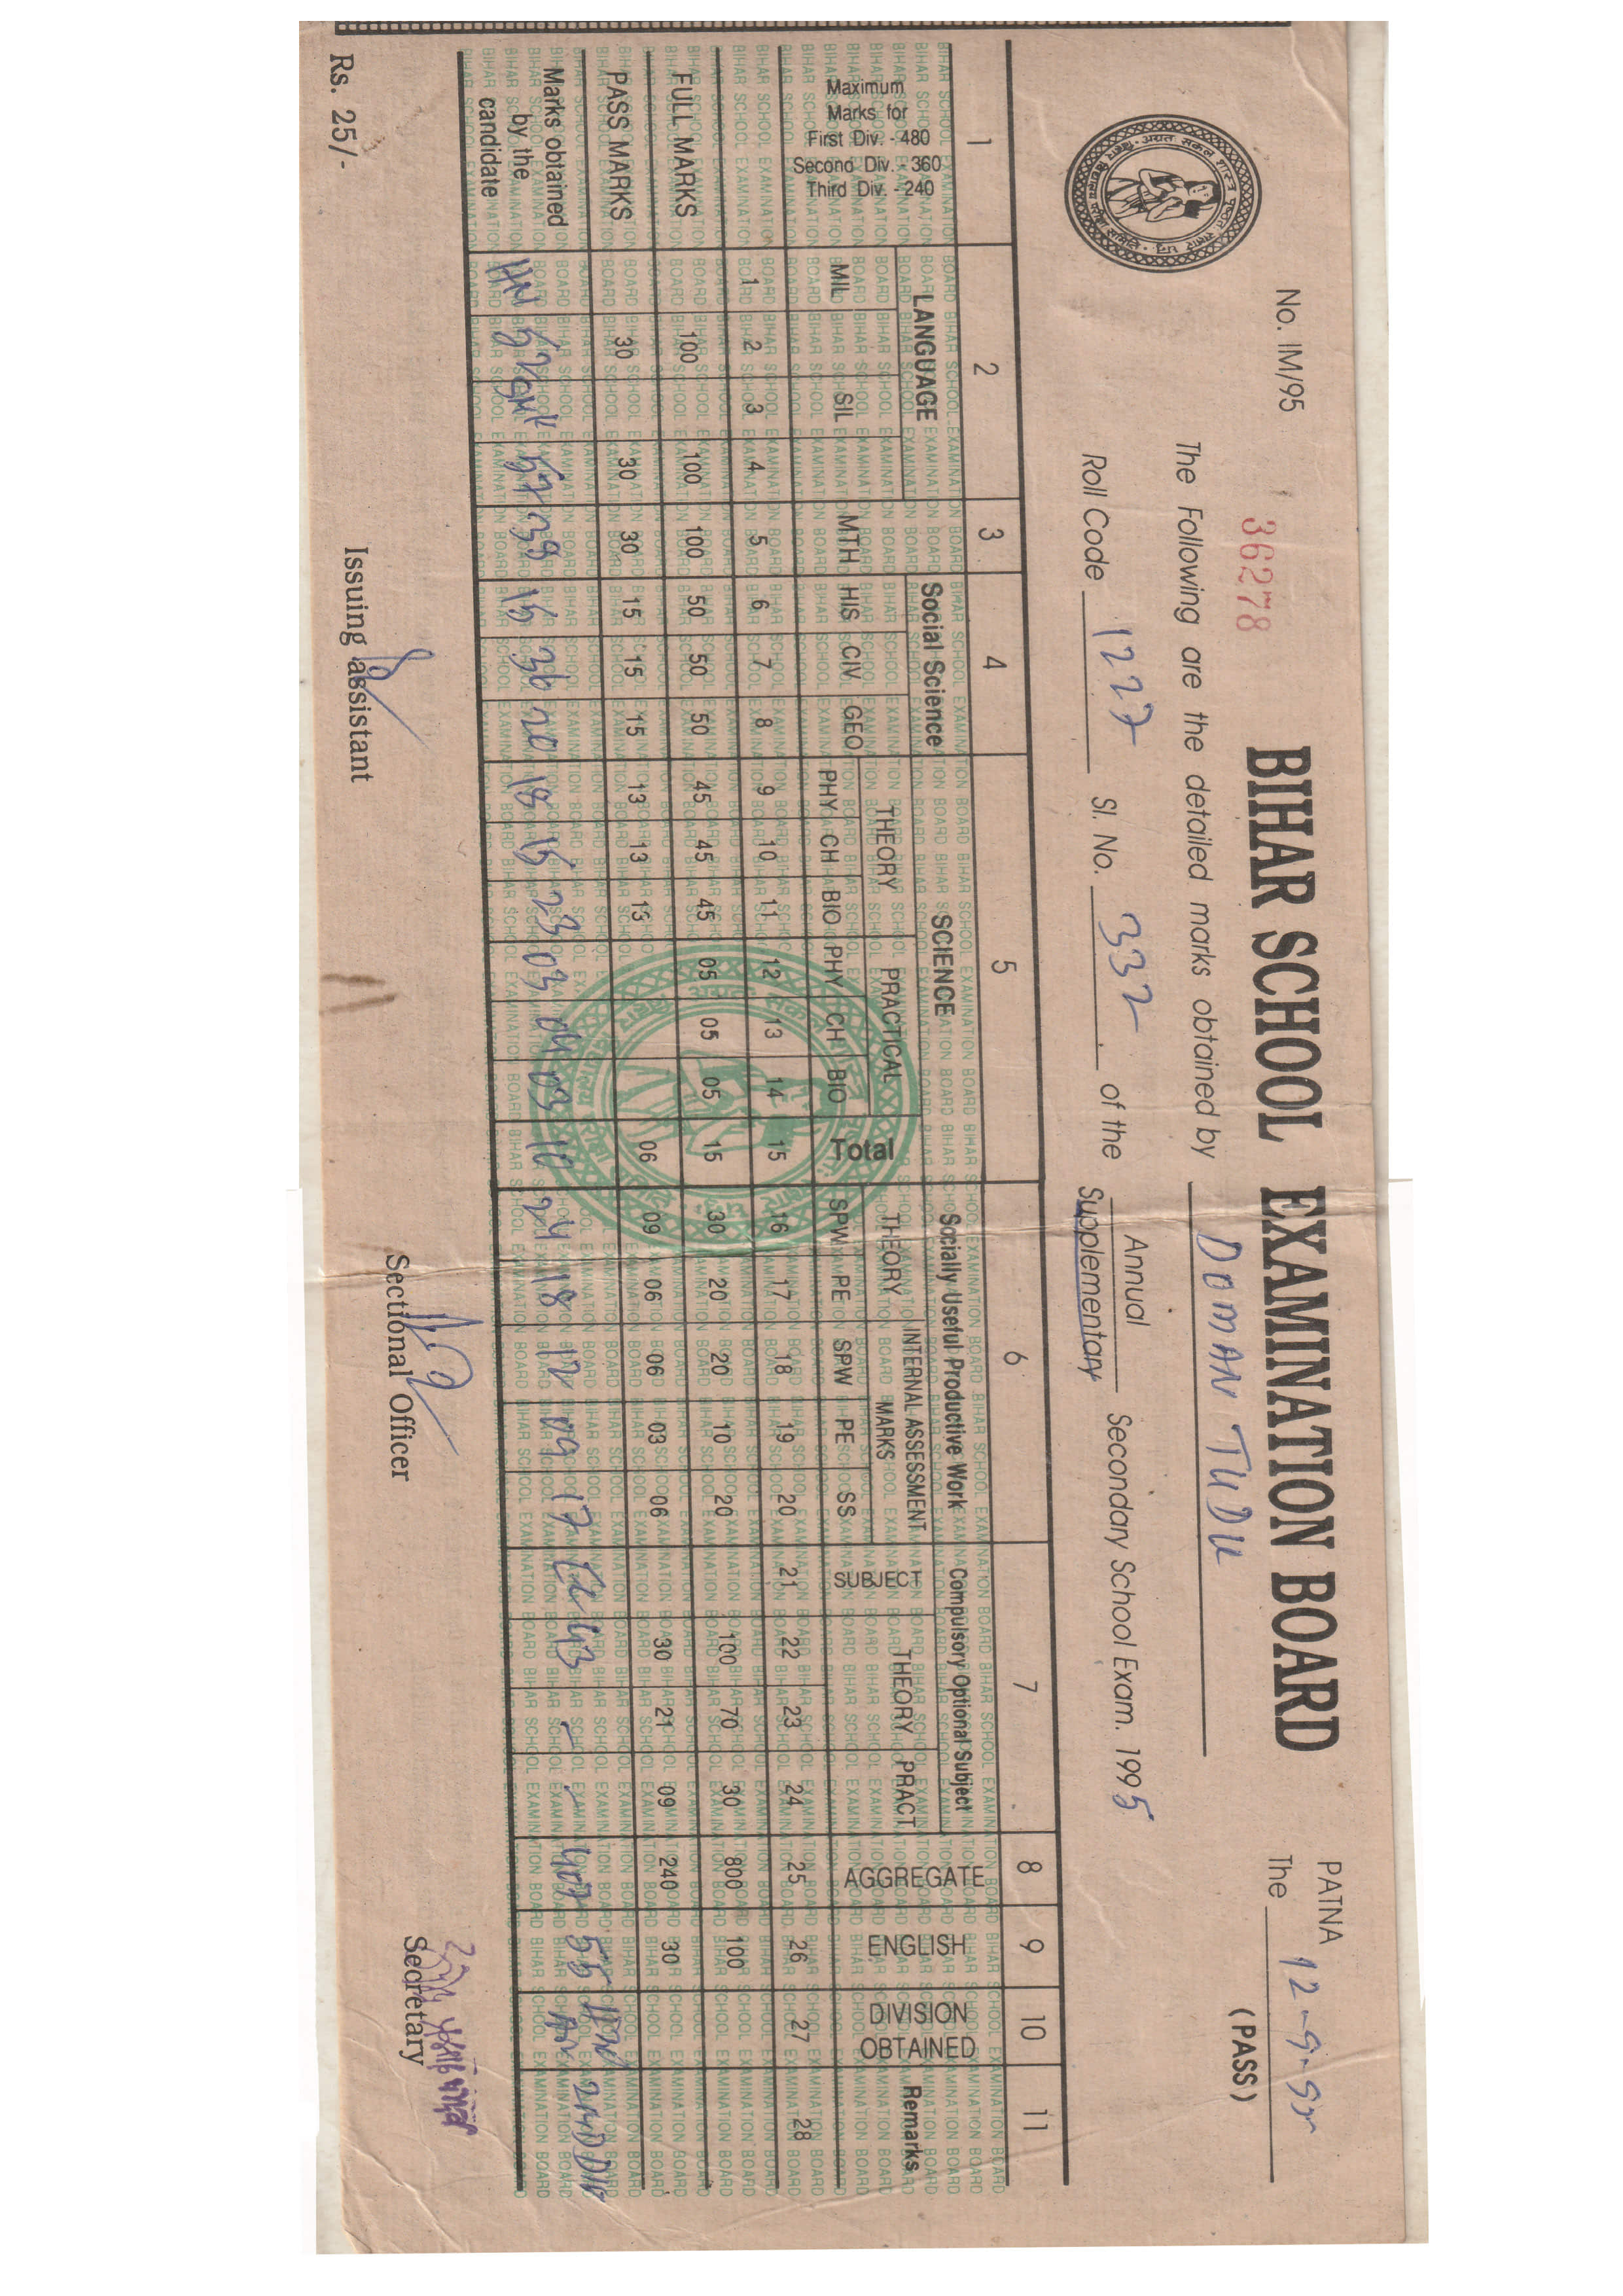 No. IM/95
36278
BIHAR SCHOOL EXAMINATION BOARD
PATNA
The 12-9-95
(PASS)
The Following are the detailed marks obtained by DOMAN TUDU
Roll Code 1227 Sl. No. 332 of the Annual Supplementary Secondary School Exam. 1995
1 2 3 4 5 6 7 8 9 10 11
Maximum
Marks for
First Div. - 480
Second Div. - 360
Third Div. - 240
LANGUAGE Social Science SCIENCE Socially Useful Productive Work Compulsory Optional Subject AGGREGATE ENGLISH DIVISION OBTAINED Remarks
THEORY PRACTICAL Total THEORY INTERNAL ASSESSMENT MARKS SUBJECT THEORY PRACT
MIL SIL MTH HIS CIV GEO PHY CH BIO PHY CH BIO SPW PE SPW PE SS
1 2 3 4 5 6 7 8 9 10 11 12 13 14 15 16 17 18 19 20 21 22 23 24 25 26 27 28
FULL MARKS 100 100 100 50 50 50 45 45 45 05 05 05 15 30 20 20 10 20 100 70 30 800 100
PASS MARKS 30 30 30 15 15 15 13 13 13 06 09 06 06 03 06 30 21 09 240 30
Marks obtained by the candidate HN 52 57 39 15 36 20 18 15 23 03 04 03 10 24 18 12 09 17 43 - - 407 55 2ND DIV
Rs. 25/-
Issuing assistant
Sectional Officer
Secretary